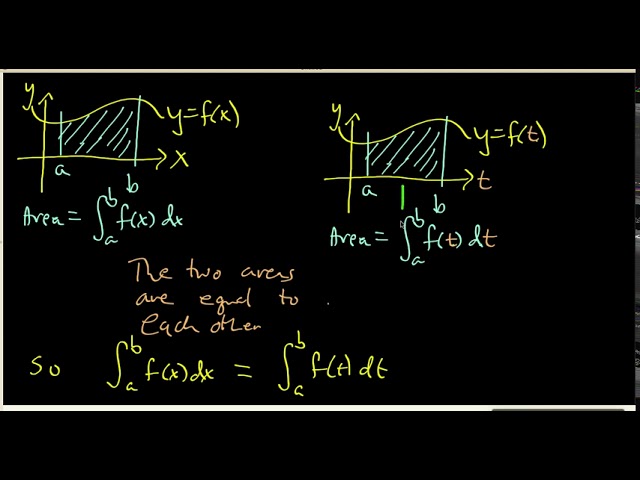 y
y=f(x)
x
a
b
Area = ∫_a^b f(x) dx
y
y=f(t)
t
a
b
Area = ∫_a^b f(t) dt
The two areas
are equal to
each other
So ∫_a^b f(x) dx = ∫_a^b f(t) dt